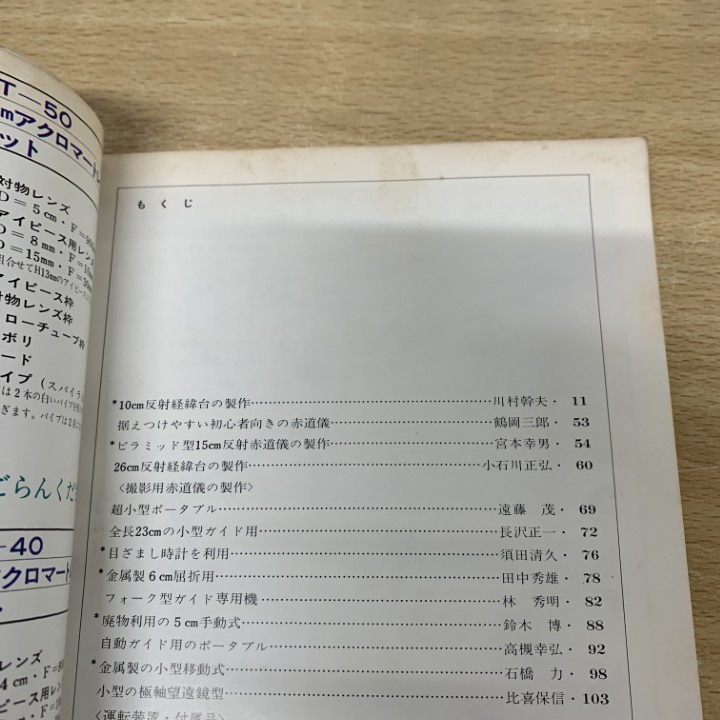 T-50
mmアクロマートレ
ット
対物レンズ
D=5cm・F=
アイピース用レン
D=8mm・F=10m
D=15mm・F=30m
組合せてH13mmのアイピースに
アイピース枠
対物レンズ枠
ローチューブ枠
ード
イプ(スパイラ
は2本の白いパイプを
ぎます。パイプは2
ごらんくださ
-40
アクロマート
レンズ
4cm・F=80
ピース用レ
もくじ
*10cm反射経緯台の製作……川村幹夫・11
据えつけやすい初心者向きの赤道儀……鶴岡三郎・53
*ピラミッド型15cm反射赤道儀の製作……宮本幸男・54
26cm反射経緯台の製作……小石川正弘・60
〈撮影用赤道儀の製作〉
超小型ポータブル……遠藤 茂・69
全長23cmの小型ガイド用……長沢正一・72
*目ざまし時計を利用……須田清久・76
*金属製6cm屈折用……田中秀雄・78
フォーク型ガイド専用機……林 秀明・82
*廃物利用の5cm手動式……鈴木 博・88
自動ガイド用のポータブル……高槻幸弘・92
*金属製の小型移動式……石橋 力・98
小型の極軸望遠鏡型……比喜保信・103
〈運転装置・付属品〉